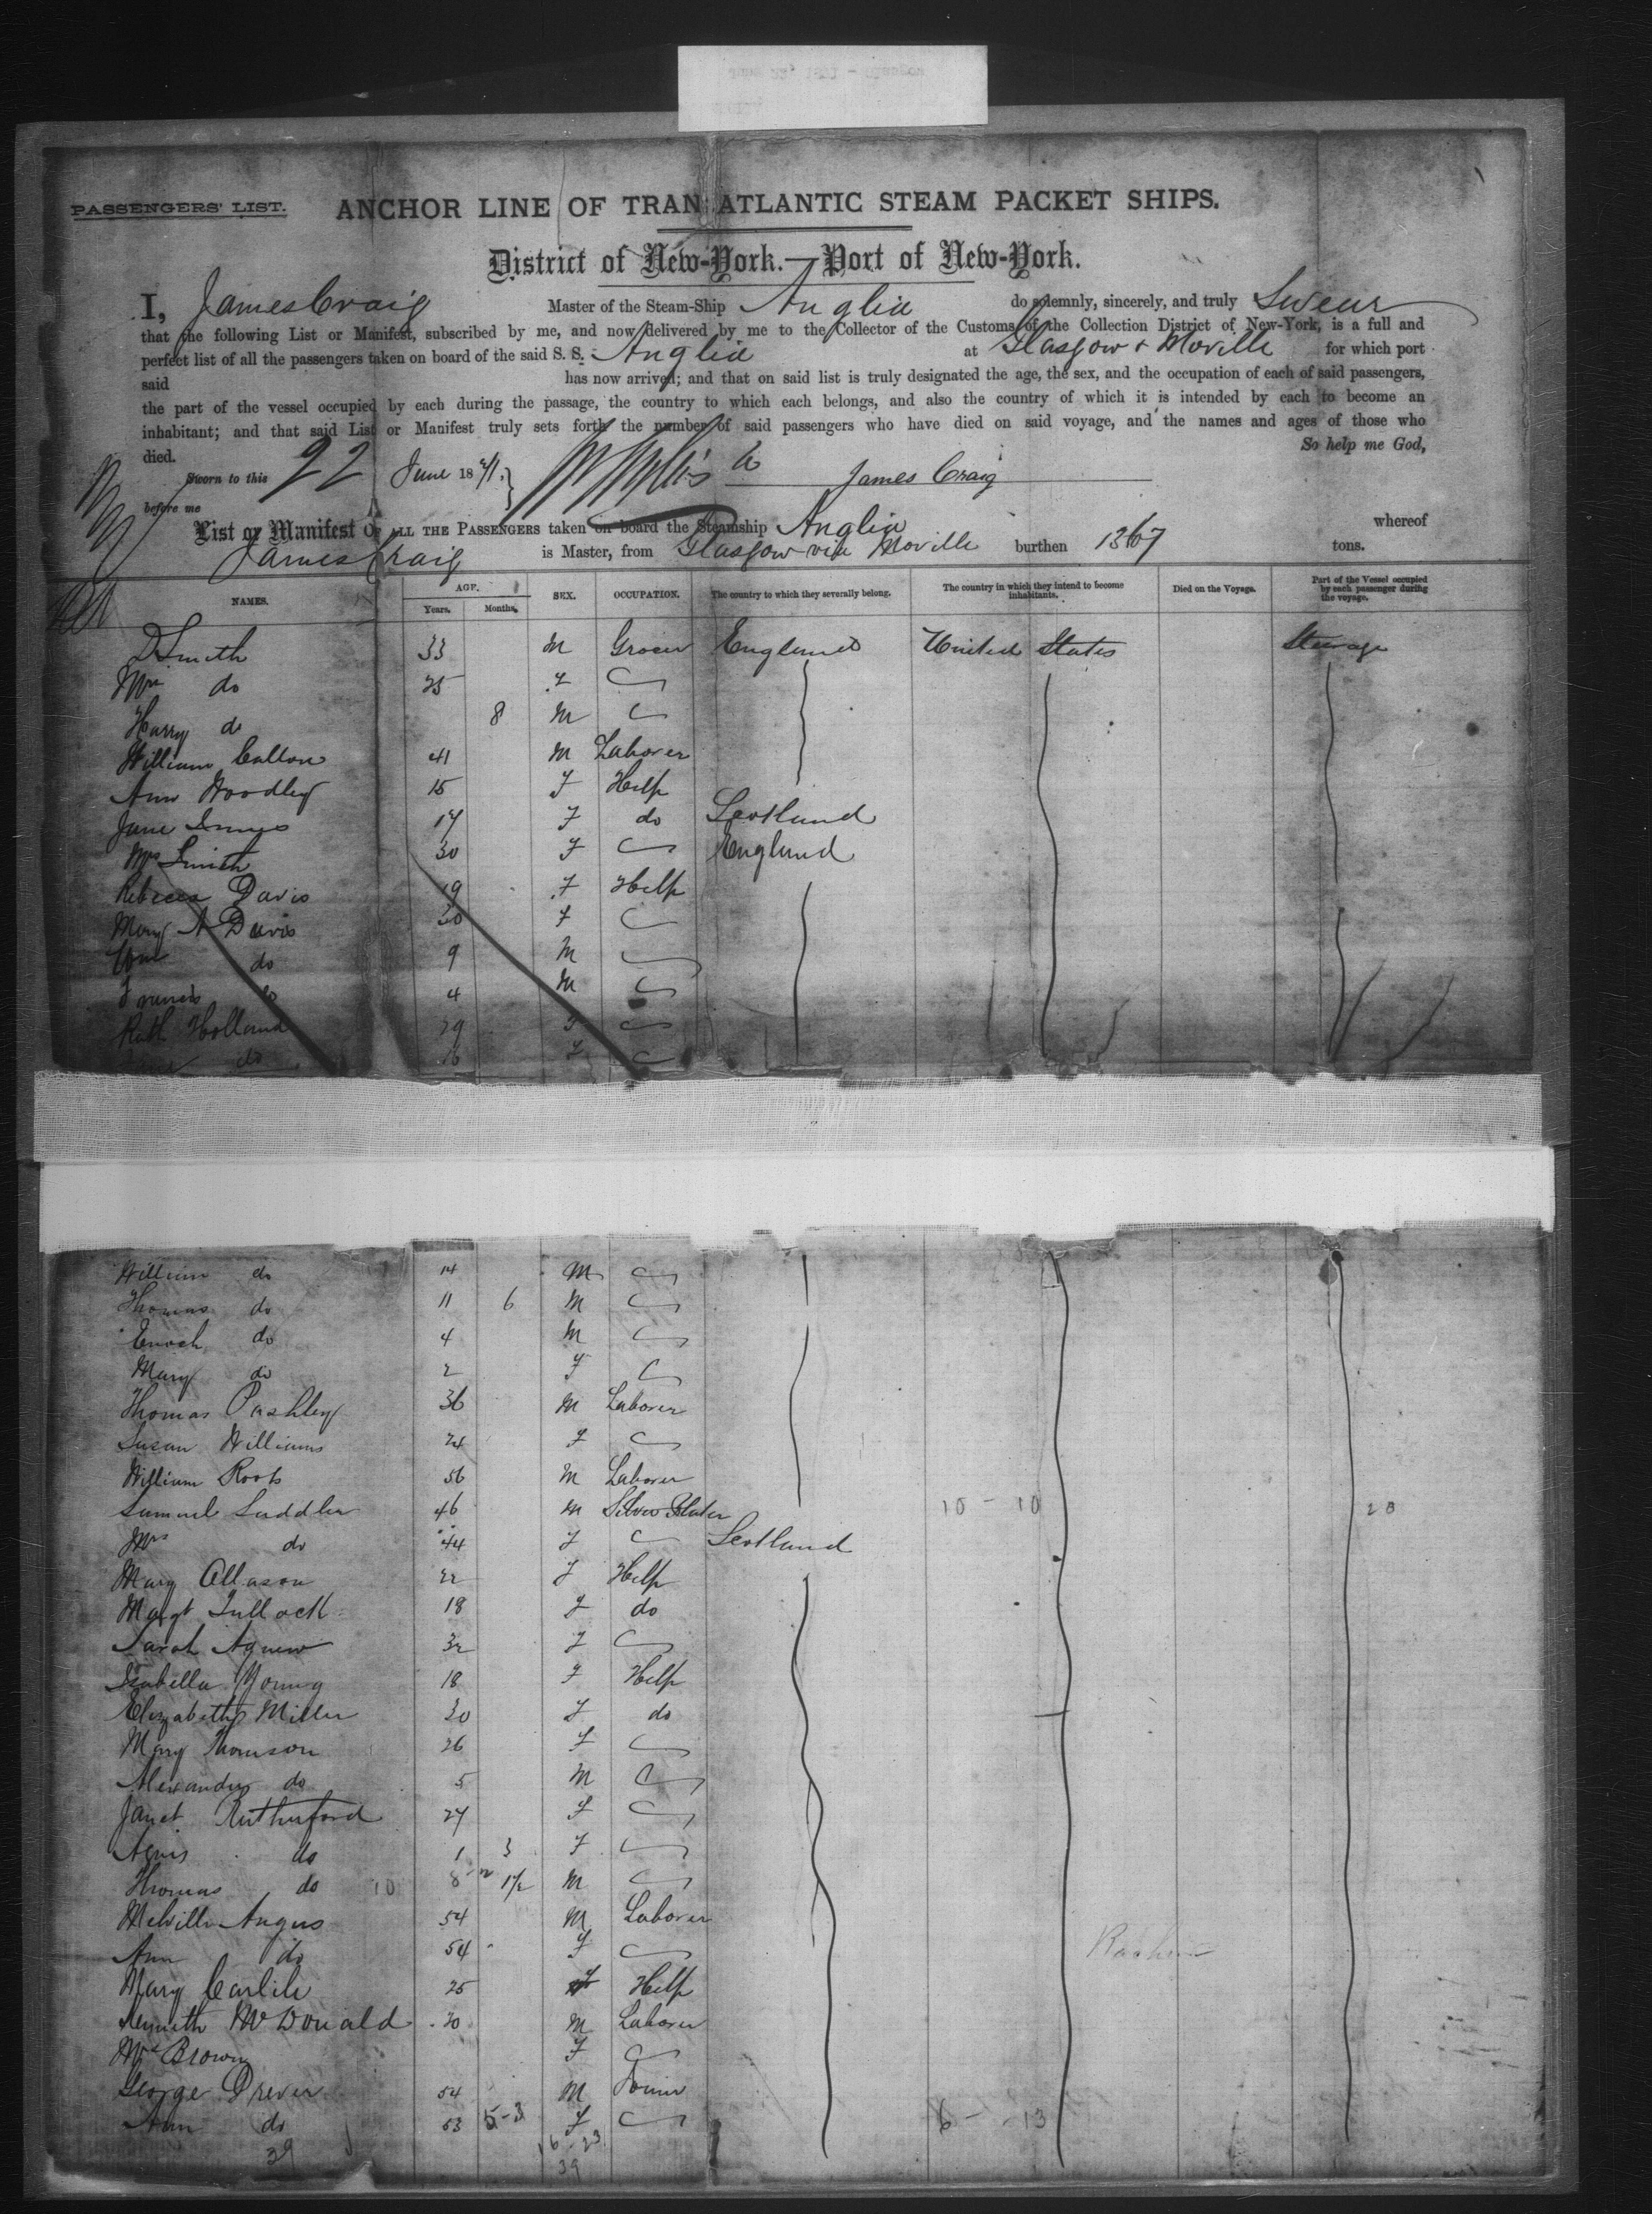 PASSENGERS' LIST.
ANCHOR LINE OF TRAN ATLANTIC STEAM PACKET SHIPS.
District of New-York.—Port of New-York.
I, James Craig Master of the Steam-Ship Anglia do solemnly, sincerely, and truly Swear
that the following List or Manifest, subscribed by me, and now delivered by me to the Collector of the Customs of the Collection District of New-York, is a full and
perfect list of all the passengers taken on board of the said S. S. Anglia at Glasgow & Moville for which port
said has now arrived; and that on said list is truly designated the age, the sex, and the occupation of each of said passengers,
the part of the vessel occupied by each during the passage, the country to which each belongs, and also the country of which it is intended by each to become an
inhabitant; and that said List or Manifest truly sets forth the number of said passengers who have died on said voyage, and the names and ages of those who
died. So help me God,
Sworn to this 22 June 1871. James Craig
before me
List or Manifest OF ALL THE PASSENGERS taken on board the Steamship Anglia whereof
James Craig is Master, from Glasgow via Moville burthen 1367 tons.
NAMES. AGE. Years. Months. SEX. OCCUPATION. The country to which they severally belong. The country in which they intend to become inhabitants. Died on the Voyage. Part of the Vessel occupied by each passenger during the voyage.
D Smith 33 M Grocer England United States Steerage
Mrs do 25 F
Harry do 8 M
William Callow 41 M Laborer
Ann Woodley 15 F Help
Jane Innes 17 F do Scotland
Mrs Smith 30 F England
Rebecca Davis 19 F Help
Mary A Davis 30 F
Wm do 9 M
Francis do 4 M
Ruth Holland 29 F
do 16 F
William do 14 M
Thomas do 11 6 M
Enoch do 4 M
Mary do 2 F
Thomas Pashley 36 M Laborer
Susan Williams 24 F
William Roots 56 M Laborer
Samuel Saddler 46 M Silver Plater 10 - 10 20
Mrs do 44 F Scotland
Mary Allason 22 F Help
Margt Tullock 18 F do
Sarah Agnew 32 F
Isabella Young 18 F Help
Elizabeth Miller 30 F do
Mary Thomson 26 F
Alexander do 5 M
Janet Rutherford 27 F
Agnes do 1 3 F
Thomas do 10 1/2 M
Melville Angus 54 M Laborer
Ann do 54 F
Mary Carlile 25 F Help
Kenneth McDonald 30 M Laborer
Mrs Brown F
George Drever 54 M Joiner
Ann do 53 5-3 F 6 - 13
39 16 - 23
39